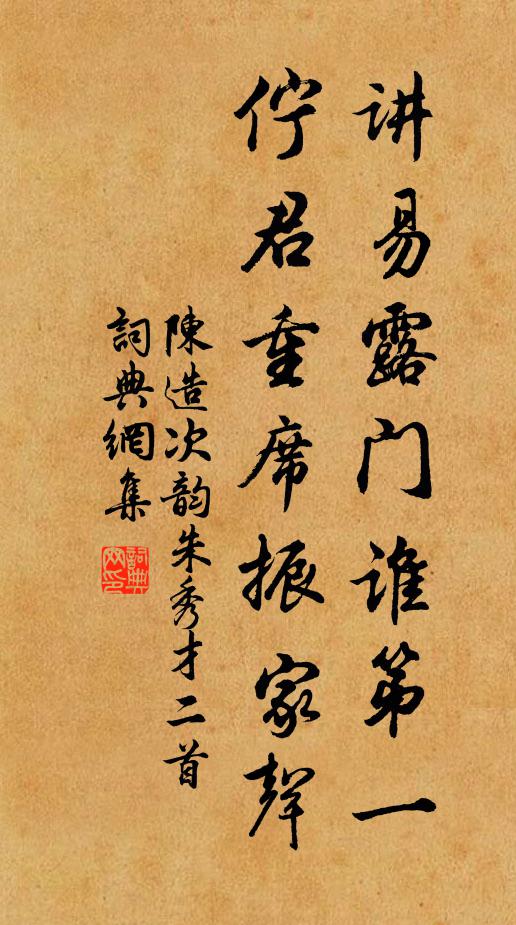 讲易露门谁第一
佇君重席振家聲
陳造次韵朱秀才二首
詞典網集
詞典
网印